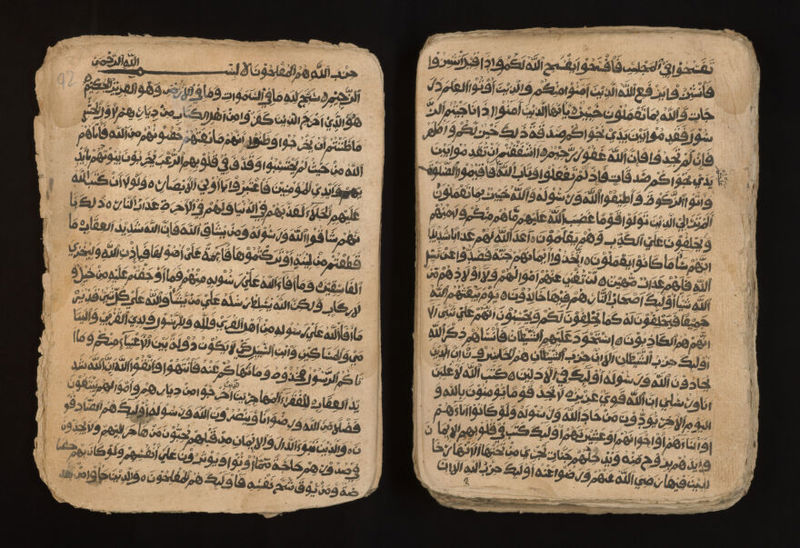 تفسحوا في المجلس فافسحوا يفسح الله لكم واذا قيل انشزوا
فانشزوا يرفع الله الذين امنوا منكم والذين اوتوا العلم در
جات والله بما تعملون خبير يايها الذين امنوا اذا ناجيتم الر
سول فقدموا بين يدي نجواكم صدقة ذلك خير لكم واطهر
فان لم تجدوا فان الله غفور رحيم ااشفقتم ان تقدموا بين
يدي نجواكم صدقات فاذ لم تفعلوا وتاب الله فاقيموا الصلوة
واتوا الزكوة واطيعوا الله ورسوله والله خبير بما تعملون
الم تر الى الذين تولوا قوما غضب الله عليهم ما هم منكم ولا منهم
ويحلفون على الكذب وهم يعلمون اعد الله لهم عذابا شديدا
انهم ساء ما كانوا يعملون اتخذوا ايمانهم جنة فصدوا عن سبيل
الله فلهم عذاب مهين لن تغني عنهم اموالهم ولا اولادهم من
الله شيا اوليك اصحاب النار هم فيها خالدون يوم يبعثهم الله
جميعا فيحلفون له كما يحلفون لكم ويحسبون انهم على شيء الا
انهم هم الكاذبون استحوذ عليهم الشيطان فانساهم ذكر الله
اوليك حزب الشيطان الا ان حزب الشيطان هم الخاسرون ان الذين
يحادون الله ورسوله اوليك في الاذلين كتب الله لاغلبن
انا ورسلي ان الله قوي عزيز لا تجد قوما يومنون بالله و
اليوم الاخر يوادون من حاد الله ورسوله ولو كانوا اباءهم
او ابناءهم او اخوانهم او عشيرتهم اوليك كتب في قلوبهم الايمان
وايدهم بروح منه ويدخلهم جنات تجري من تحتها الانهار خا
لدين فيها رضي الله عنهم ورضوا عنه اوليك حزب الله الا ان
حزب الله هم المفلحون الله الرحمن
الرحيم سبح لله ما في السماوات وما في الارض وهو العزيز الحكيم
هو الذي اخرج الذين كفروا من اهل الكتاب من ديارهم لاول الحشر
ما ظننتم ان يخرجوا وظنوا انهم مانعتهم حصونهم من الله فاتاهم
الله من حيث لم يحتسبوا وقذف في قلوبهم الرعب يخربون بيوتهم بايد
يهم وايدي المومنين فاعتبروا يا اولي الابصار ولولا ان كتب الله
عليهم الجلاء لعذبهم في الدنيا ولهم في الاخرة عذاب النار ذلك با
نهم شاقوا الله ورسوله ومن يشاق الله فان الله شديد العقاب ما
قطعتم من لينة او تركتموها قايمة على اصولها فباذن الله وليخزي
الفاسقين وما افاء الله على رسوله منهم فما اوجفتم عليه من خيل و
لا ركاب ولكن الله يسلط رسله على من يشاء والله على كل شيء قدير
ما افاء الله على رسوله من اهل القرى فلله وللرسول ولذي القربى واليتا
مى والمساكين وابن السبيل كي لا يكون دولة بين الاغنياء منكم وما ا
تاكم الرسول فخذوه وما نهاكم عنه فانتهوا واتقوا الله ان الله شد
يد العقاب للفقراء المهاجرين الذين اخرجوا من ديارهم واموالهم يبتغون
فضلا من الله ورضوانا وينصرون الله ورسوله اوليك هم الصادقو
ن والذين تبوءو الدار والايمان من قبلهم يحبون من هاجر اليهم ولا يجدون
في صدورهم حاجة مما اوتوا ويوثرون على انفسهم ولو كان بهم خصا
صة ومن يوق شح نفسه فاوليك هم المفلحون والذين جاءو من بعد